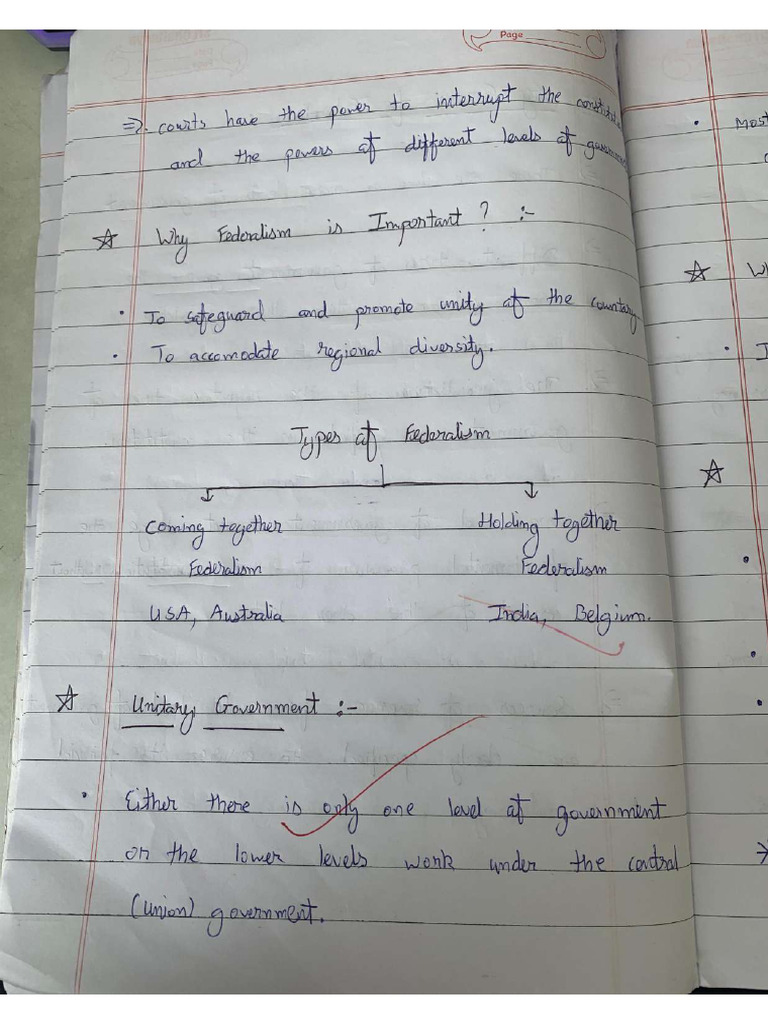 Page
⇒ courts have the power to interrupt the
and the powers of different levels of
☆ Why Federalism is Important? :-
• To safeguard and promote unity of the countary
• To accomodate regional diversity.
Types of Federalism
Coming together Holding together
Federalism Federalism
USA, Australia India, Belgium.
☆ Unitary Government :-
• Either there is only one level of government
or the lower levels work under the central
(union) government.
• Most
☆
•
☆